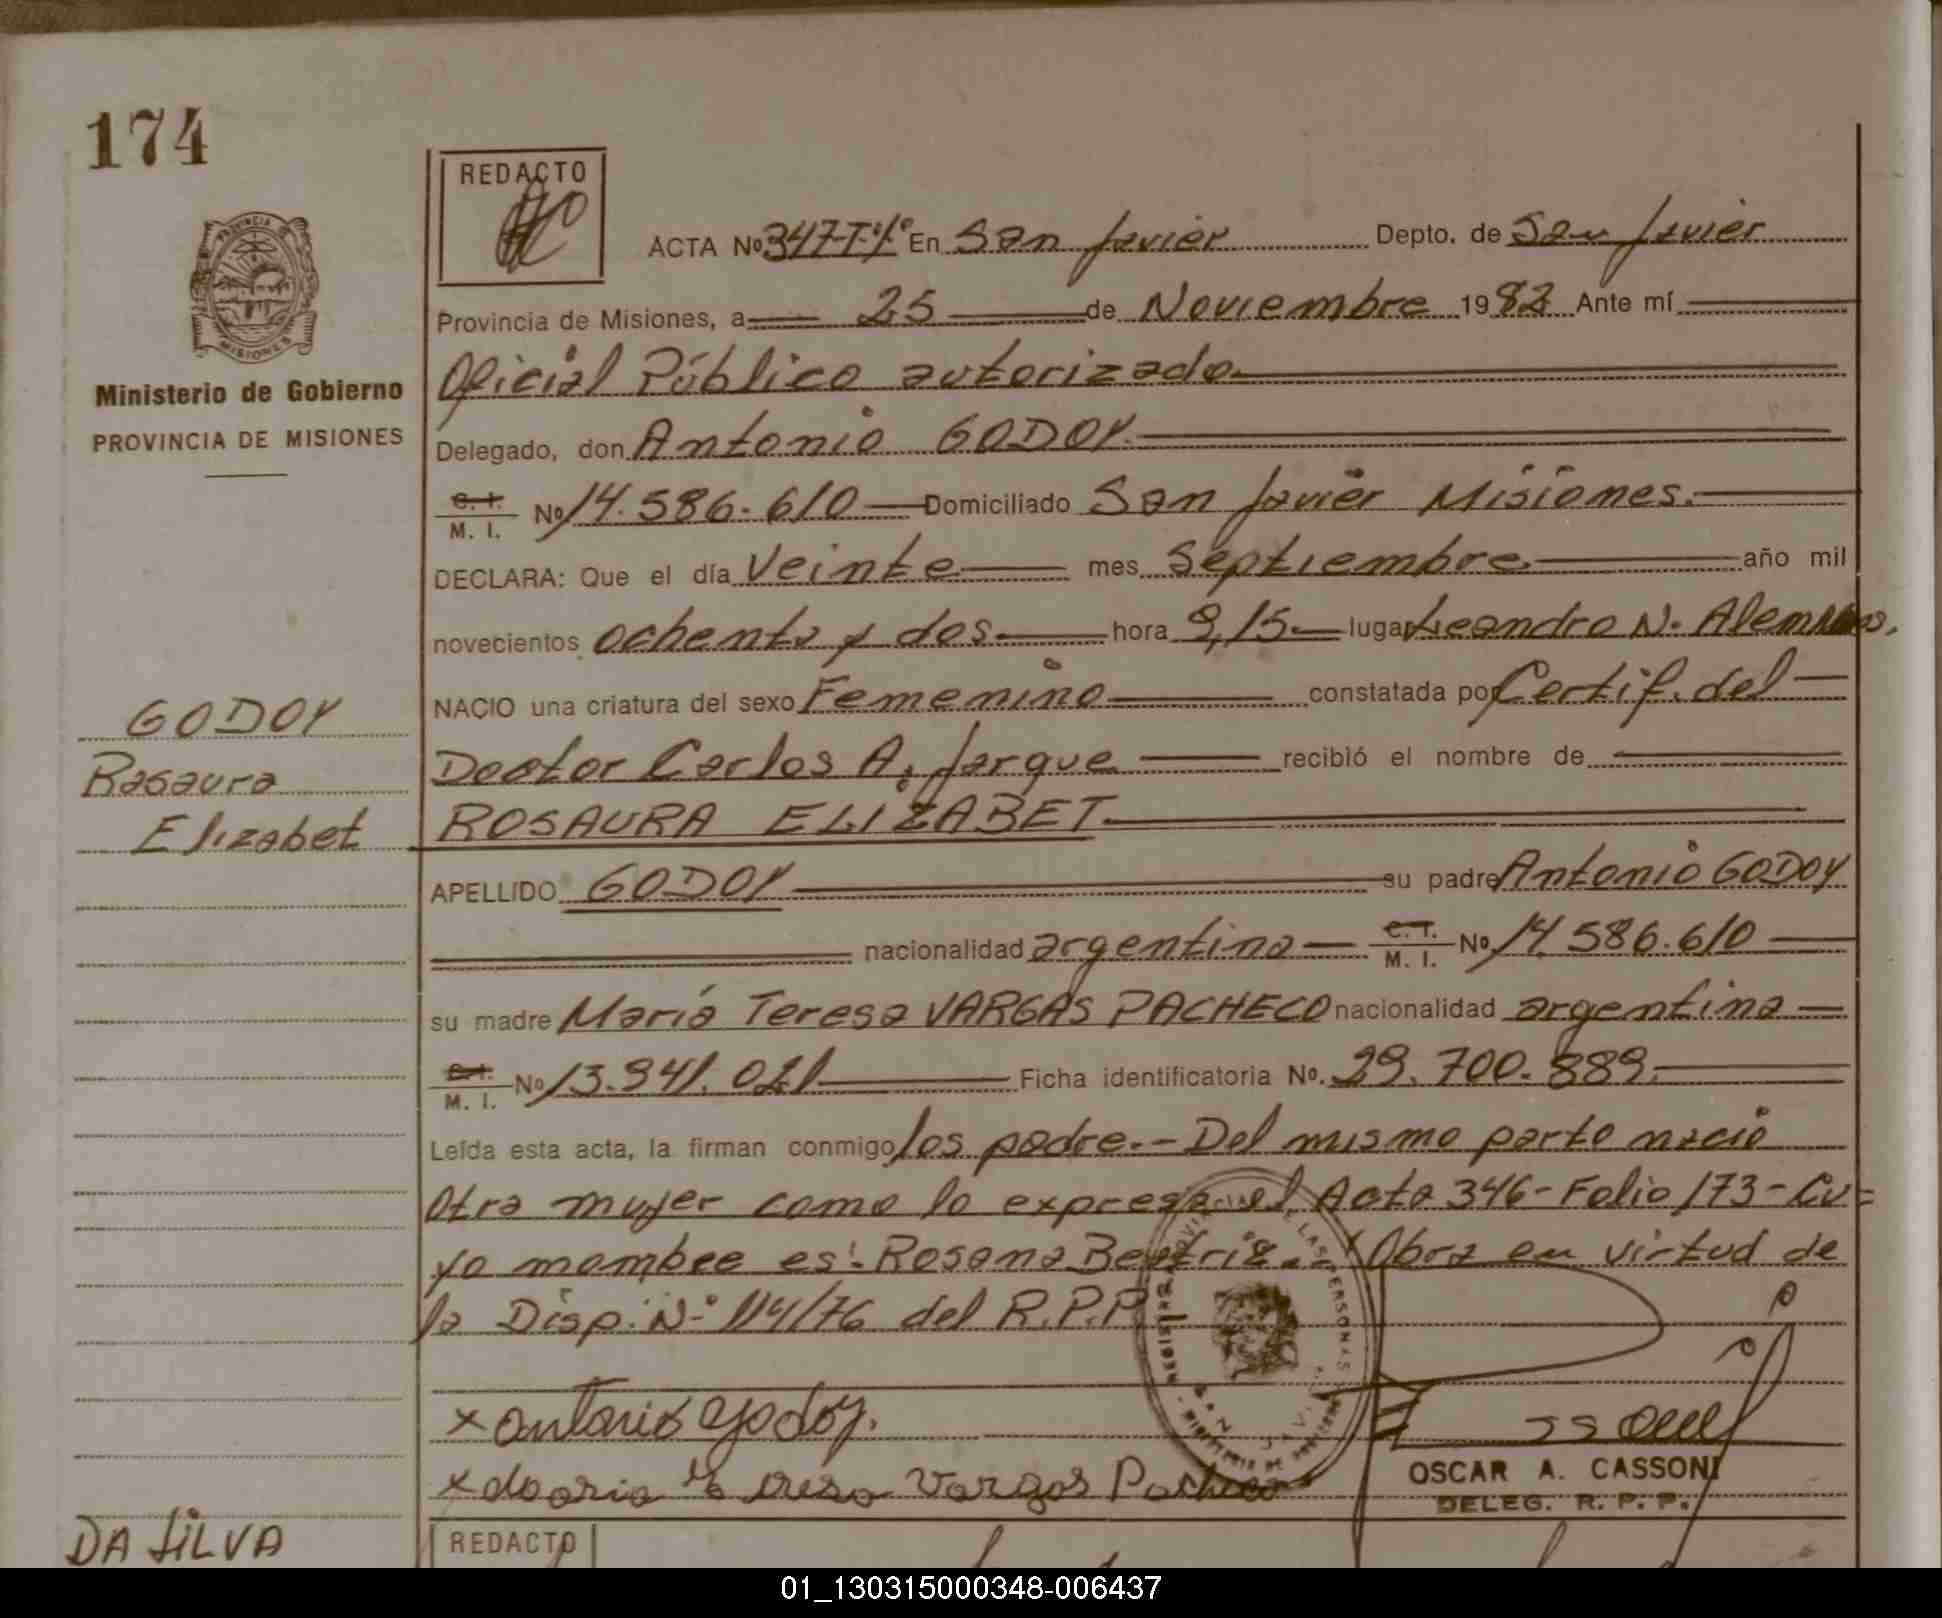 174
REDACTO
ACTA Nº 347-T.1º En San Javier Depto. de San Javier
Provincia de Misiones, a 25 de Noviembre 1982 Ante mí
Oficial Público autorizado
Ministerio de Gobierno
PROVINCIA DE MISIONES
Delegado, don Antonio GODOY.
C. I.
M. I. Nº 14.586.610 Domiciliado San Javier Misiones.
DECLARA: Que el día Veinte mes Septiembre año mil
novecientos ochenta y dos. hora 9,15 lugar Leandro N. Alem
NACIO una criatura del sexo Femenino constatada por Certif. del
Doctor Carlos A. Jarque recibió el nombre de
ROSAURA ELIZABET
GODOY
Rosaura
Elizabet
APELLIDO GODOY su padre Antonio GODOY
nacionalidad argentina C. I.
M. I. Nº 14.586.610
su madre María Teresa VARGAS PACHECO nacionalidad argentina
C. I.
M. I. Nº 13.941.021 Ficha identificatoria Nº. 29.700.889.
Leída esta acta, la firman conmigo los padre.- Del mismo parto nació
otra mujer como lo expresa el Acta 346- Folio 173- Cu=
yo nombre es: Rosana Beatriz.- Obra en virtud de
la Disp. Nº 114/76 del R.P.P.
x Antonio Godoy.
x María Teresa Vargas Pacheco
OSCAR A. CASSONI
DELEG. R. P. P.
DA SILVA
REDACTO
01_130315000348-006437